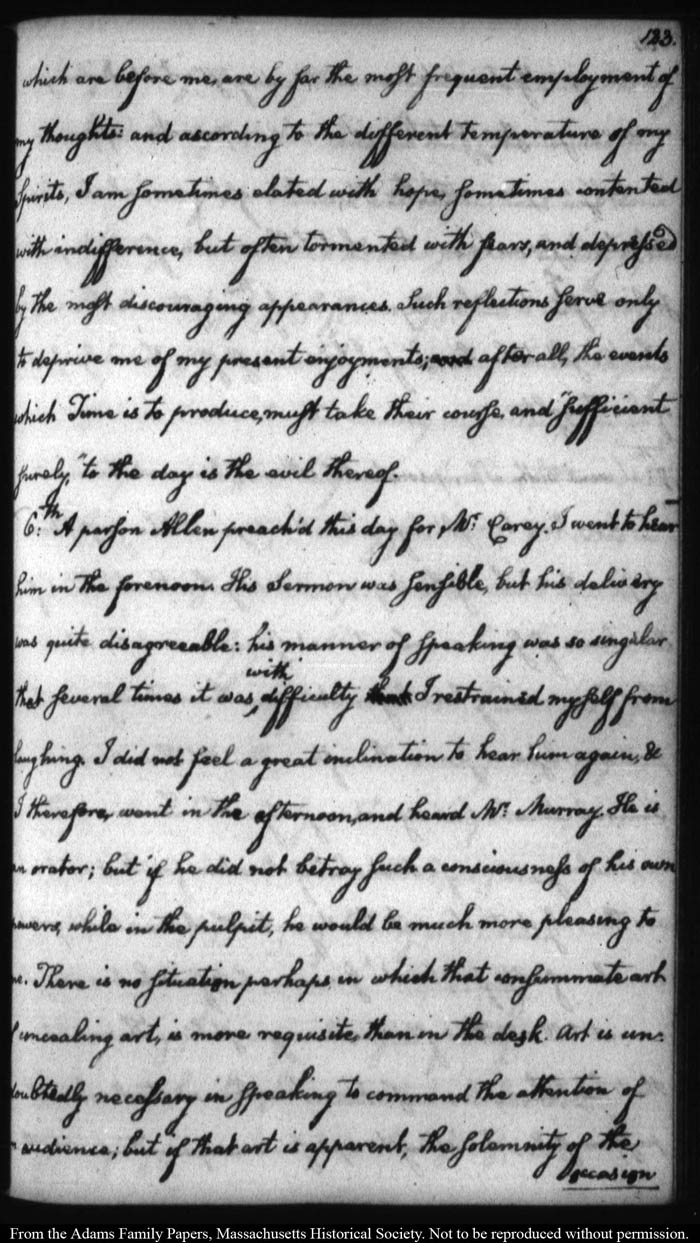 123.
which are before me, are by far the most frequent employment of
my thoughts: and according to the different temperature of my
Spirits, I am sometimes elated with hope, sometimes contented
with indifference, but often tormented with fears, and depressed
by the most discouraging appearances. Such reflections serve only
to deprive me of my present enjoyments; and after all, the events
which Time is to produce, must take their course, and "sufficient
surely," to the day is the evil thereof.
6.th A parson Allen preach'd this day for Mr. Carey. I went to hear
him in the forenoon. His Sermon was sensible, but his delivery
was quite disagreeable: his manner of speaking was so singular
with
that several times it was difficulty that I restrained myself from
laughing. I did not feel a great inclination to hear him again, &
I therefore, went in the afternoon, and heard Mr. Murray. He is
an orator; but if he did not betray such a consciousness of his own
powers, while in the pulpit, he would be much more pleasing to
me. There is no situation perhaps in which that consummate art
of concealing art, is more requisite, than in the desk. Art is un-
doubtedly necessary in speaking to command the attention of
audience; but if that art is apparent, the solemnity of the
occasion
From the Adams Family Papers, Massachusetts Historical Society. Not to be reproduced without permission.